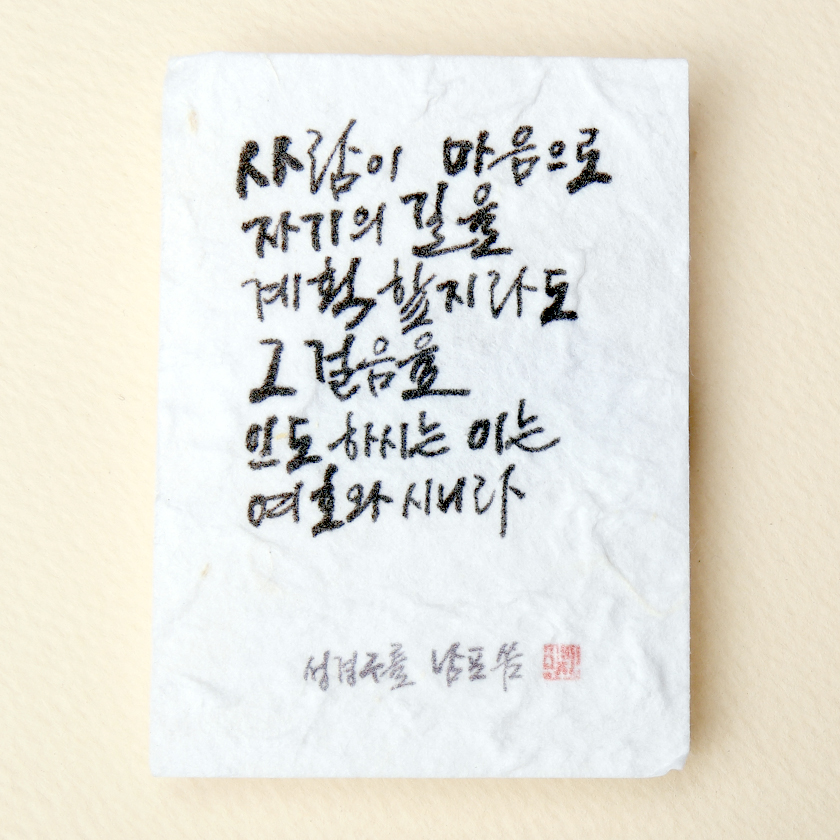 사람이 마음으로
자기의 길을
계획할지라도
그 걸음을
인도하시는 이는
여호와시니라
성경구를 남포 씀